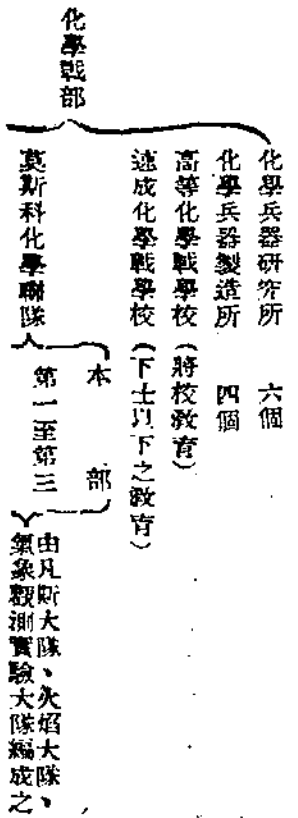 化學戰部
化學兵器研究所　六個
化學兵器製造所　四個
高等化學戰學校（將校教育）
速成化學戰學校（下士以下之教育）
莫斯科化學聯隊
本部
第一至第三
由凡斯大隊、火焰大隊、
氣象觀測實驗大隊編成之